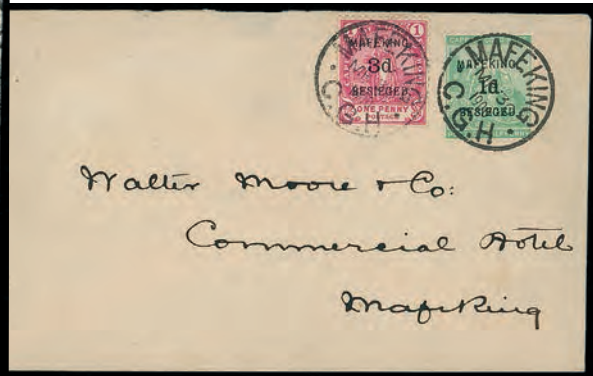 MAFEKING
C.G.H.
1
MAFEKING,
3d
BESIEGED.
ONE PENNY
POSTAGE
MAFEKING
C.G.H.
MAFEKING,
1d.
BESIEGED.
Walter Moore & Co:
Commercial Hotel
Mafeking